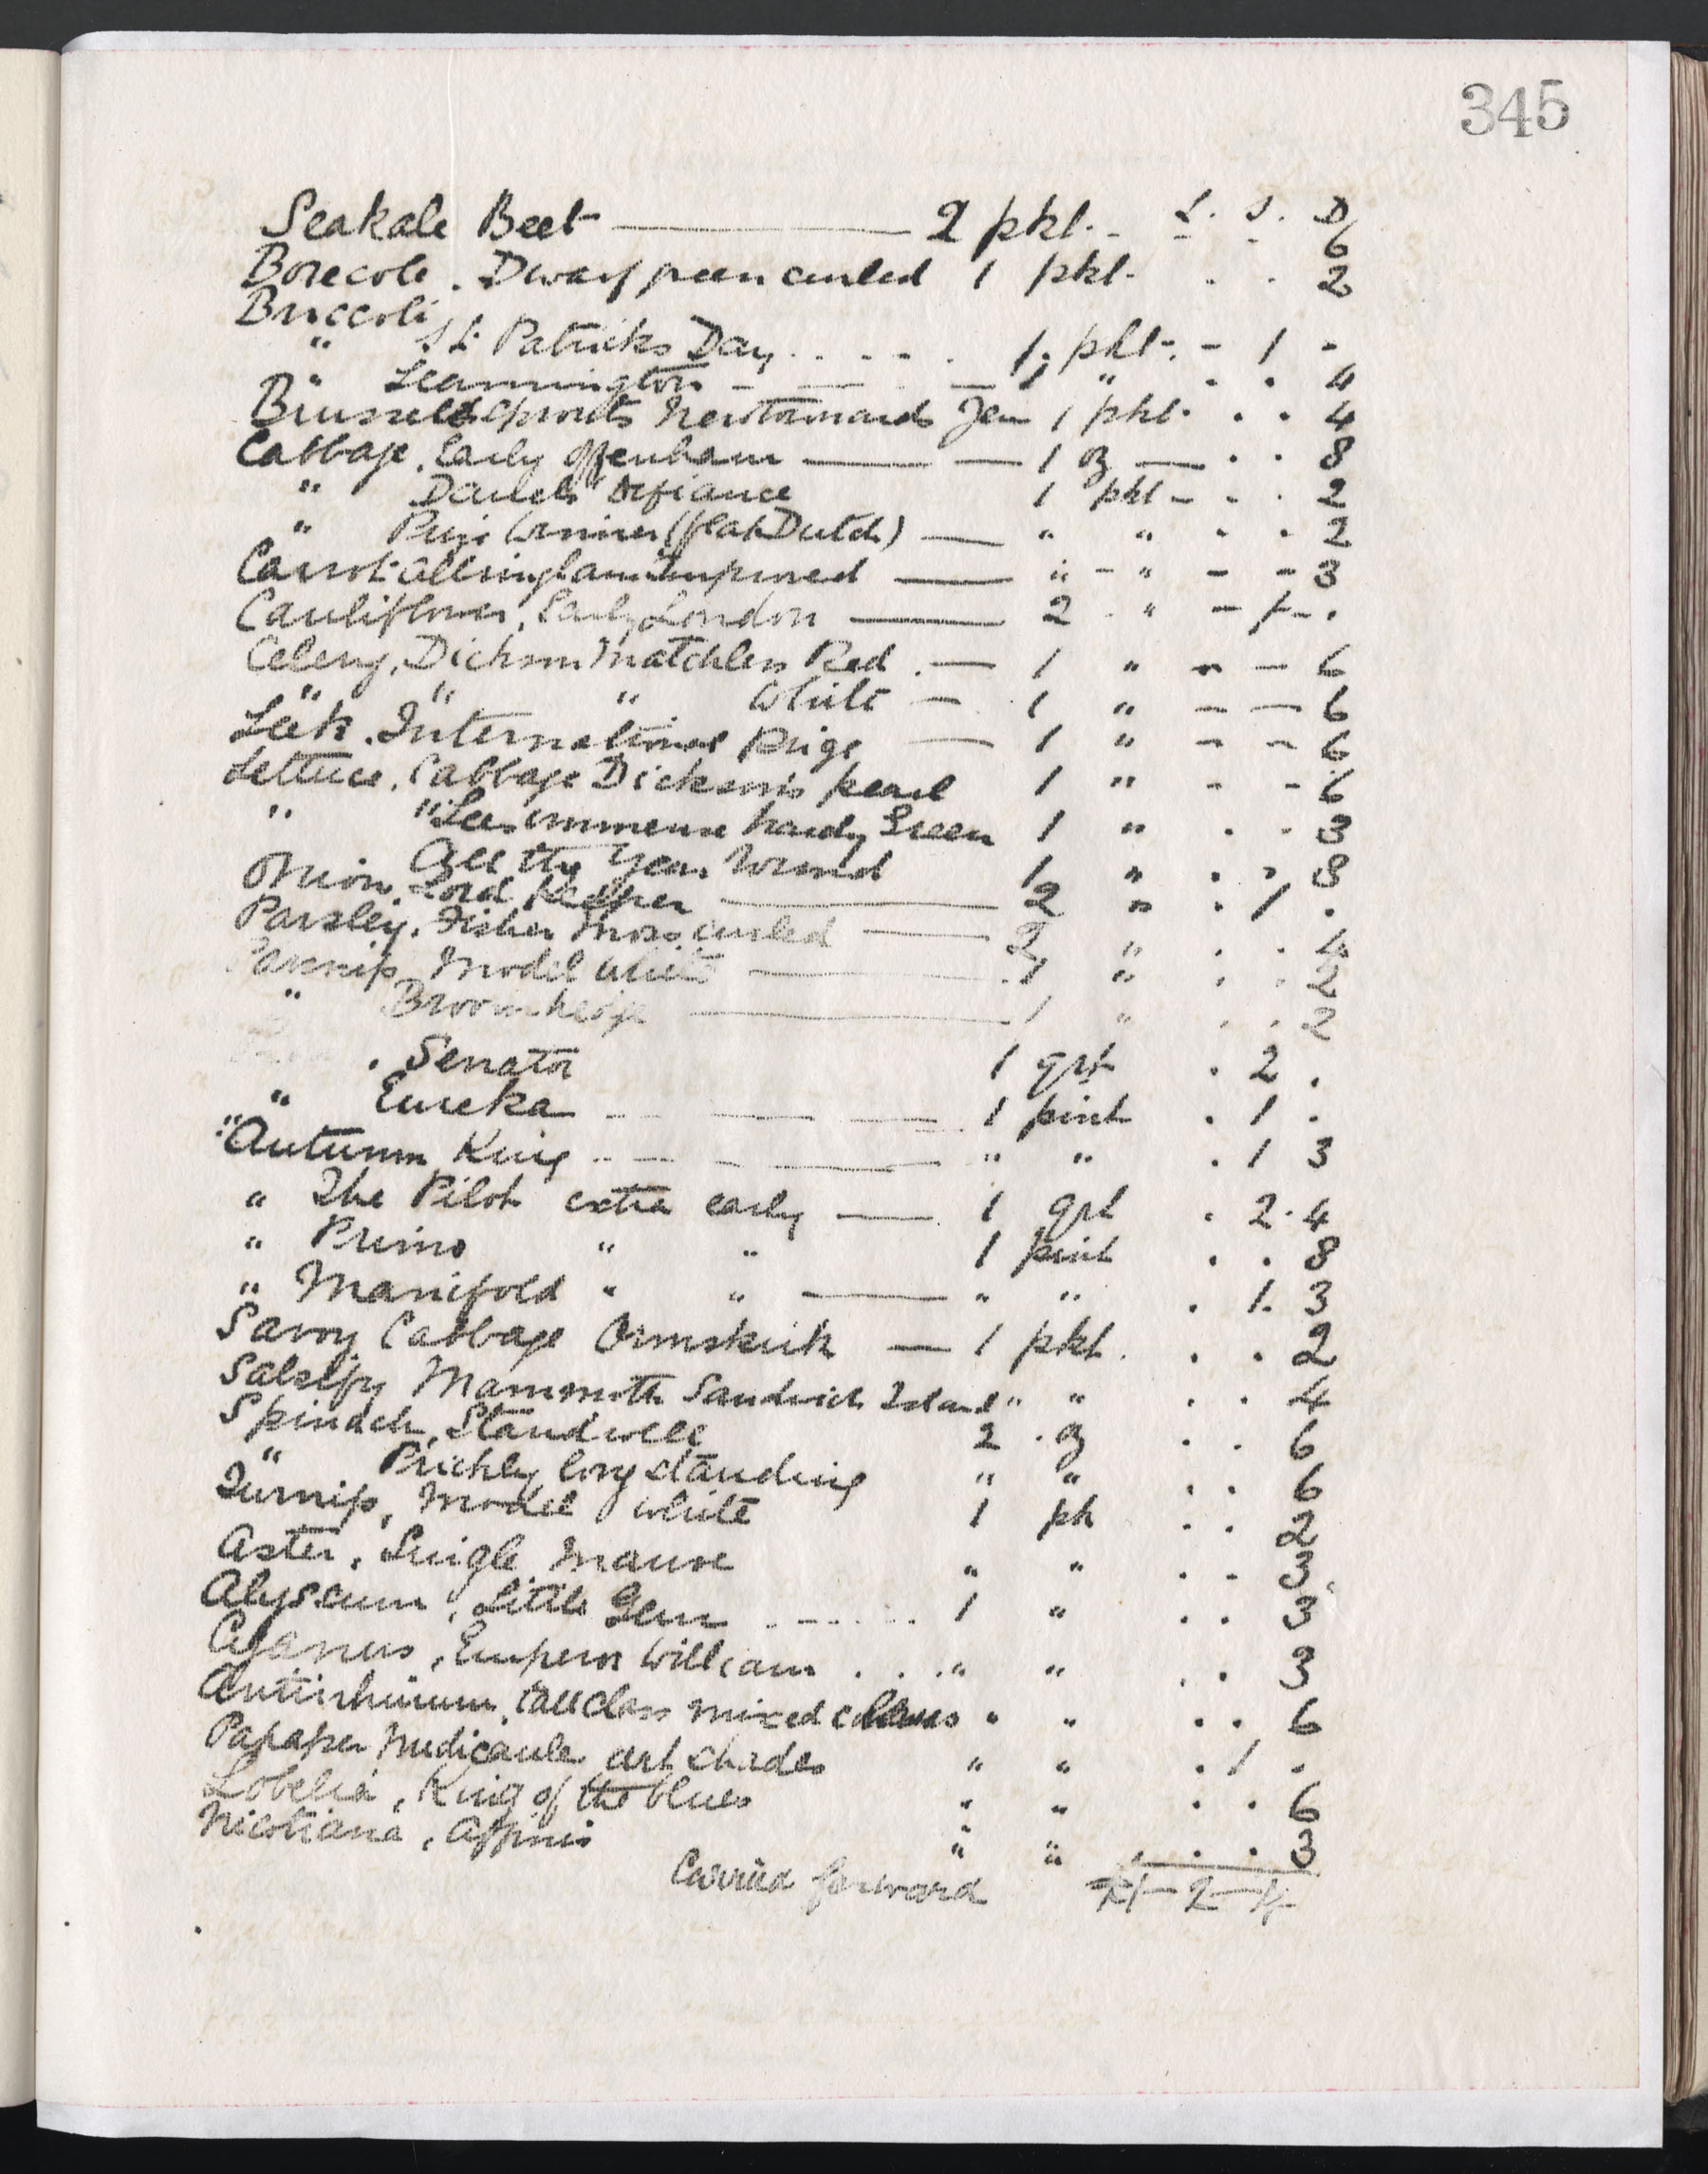 345
£. S. D
Seakale Beet — 2 pkt. - - - 6
Borecole. Dwarf green curled 1 pkt. . . 2
Broccoli
" St. Patricks Day . . - - . 1 pkt. - 1 -
" Leamington - — — 1 " . . 4
Brussels sprouts Newtownards Gem 1 pkt. . . 4
Cabbage. Early Offenham — — 1 oz — . . 8
" Daniels Defiance 1 pkt - - . 2
" Prize Winner (flat Dutch) — " " . . 2
Carrot Altringham Improved — " - " - - 3
Cauliflower, Early London — 2 . " - 1 - .
Celery, Dickson Matchless Red . — 1 " - — 6
" " " White — . 1 " — — 6
Leek. International Prize — 1 " - - 6
Lettuce, Cabbage Dickson's pearl 1 " - - 6
" " Lees immense hardy Green 1 " . . 3
All the Year Round 1 " . . 3
Onion, Lord Keeper — 2 " . 1 .
Parsley. Fisher Moss curled — 2 " . . 4
Parsnip Model White — . 1 " . . 2
" Broomhedge — 1 " . . 2
. Senator 1 qrt . 2 .
" Eureka - - — — 1 pint . 1 .
" Autumn King - - — - — " " . 1 3
" The Pilot extra early — . 1 qrt . 2 . 4
" Primo " " 1 pint . . 8
" Manifold " " — " " . 1. 3
Savoy Cabbage Ormskirk — 1 pkt . . . 2
Salsify Mammoth Sandwich Island " " . . 4
Spinach, Standwell 2 . oz . . 6
" Prickly long standing " " . . 6
Turnip, Model White 1 pk . . 2
Aster, Single Mauve " " . - 3
Alyssum, Little Gem . - - . . . 1 " . . 3
Cyanus, Emperor William . . . " " . . 3
Antirhinum, tall class mixed colours " " . . 6
Papaper Nudicaule art shades " " . 1 .
Lobelia, King of the blues " " . . 6
Nicotiana, Affinis " " . . . 3
Carried forward £1 - 2 - 4